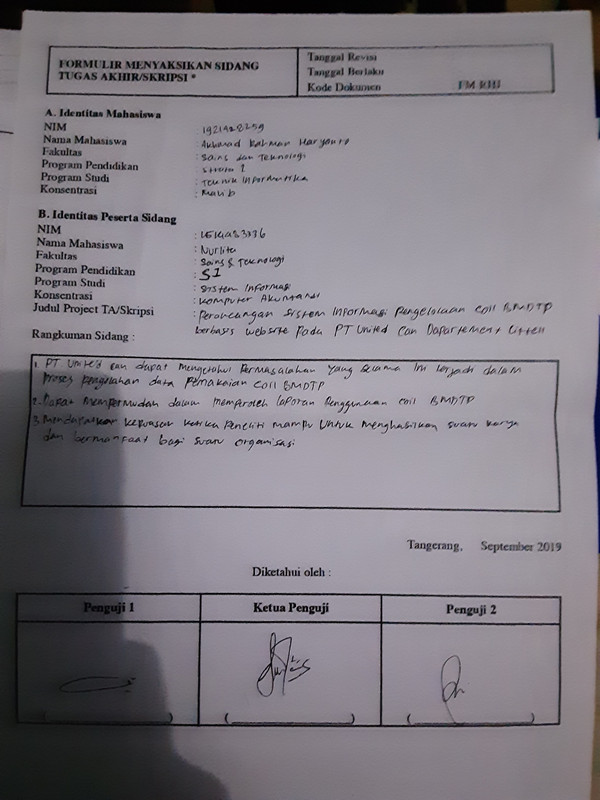 FORMULIR MENYAKSIKAN SIDANG
TUGAS AKHIR/SKRIPSI *
Tanggal Revisi
Tanggal Berlaku
Kode Dokumen
A. Identitas Mahasiswa
NIM
Nama Mahasiswa : Rahman Haryanto
Fakultas : Sains dan Teknologi
Program Pendidikan : Strata 1
Program Studi : Teknik Informatika
Konsentrasi
B. Identitas Peserta Sidang
NIM
Nama Mahasiswa : Nurlita
Fakultas : Sains & Teknologi
Program Pendidikan : S1
Program Studi : Sistem Informasi
Konsentrasi : Komputer Akuntansi
Judul Project TA/Skripsi : Perancangan Sistem Informasi Pengelolaan coil BMDTP
berbasis website Pada PT United Can Departement
Rangkuman Sidang :
1. PT United can dapat mengetahui Permasalahan yang selama ini terjadi dalam
Proses Pengolahan data Pemakaian coil BMDTP
2. Dapat mempermudah dalam memperoleh laporan Penggunaan coil BMDTP
3. Mendapatkan ketika Peneliti mampu Untuk menghasilkan suatu karya
dan bermanfaat bagi suatu organisasi
Tangerang, September 2019
Diketahui oleh :
Penguji 1 Ketua Penguji Penguji 2